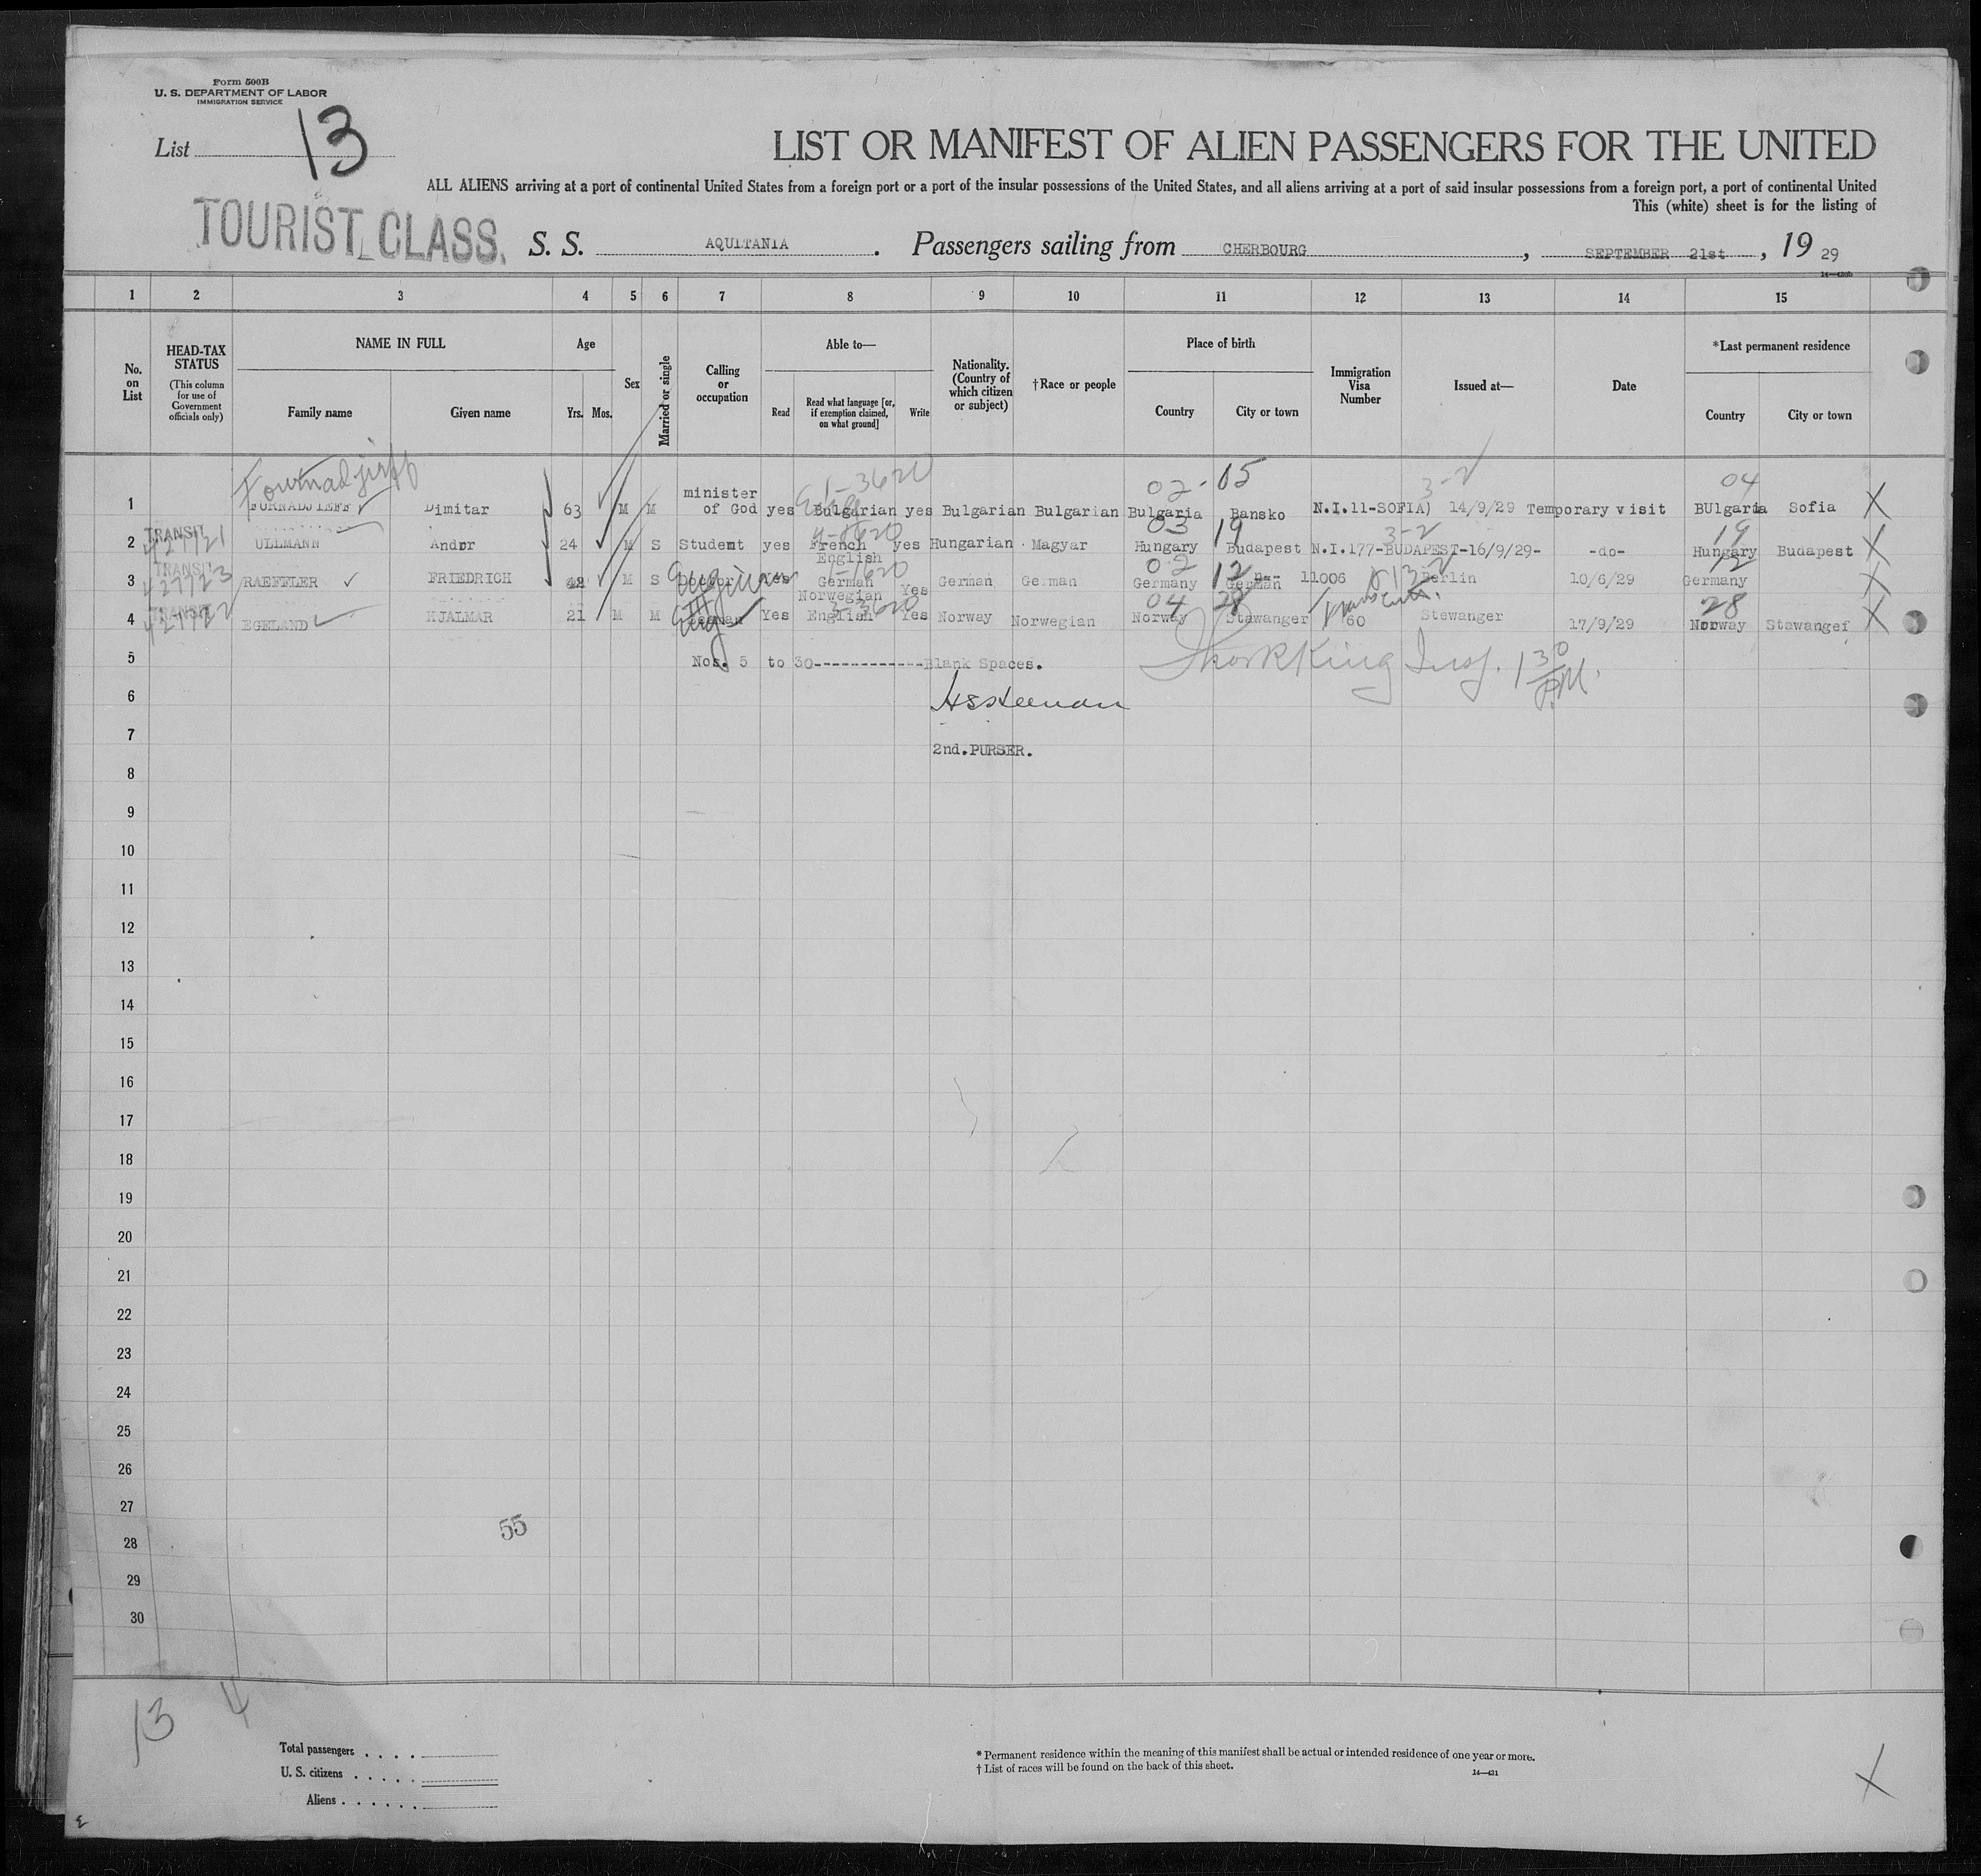 Form 500B
U. S. DEPARTMENT OF LABOR
IMMIGRATION SERVICE
List 13
LIST OR MANIFEST OF ALIEN PASSENGERS FOR THE UNITED
ALL ALIENS arriving at a port of continental United States from a foreign port or a port of the insular possessions of the United States, and all aliens arriving at a port of said insular possessions from a foreign port, a port of continental United
This (white) sheet is for the listing of
TOURIST CLASS.
S. S. AQUITANIA. Passengers sailing from CHERBOURG, SEPTEMBER 21st, 19 29
14-430b
1 2 3 4 5 6 7 8 9 10 11 12 13 14 15
No. on List
HEAD-TAX STATUS
(This column for use of Government officials only)
NAME IN FULL
Family name
Given name
Age
Yrs. Mos.
Sex
Married or single
Calling or occupation
Able to—
Read
Read what language [or, if exemption claimed, on what ground]
Write
Nationality. (Country of which citizen or subject)
†Race or people
Place of birth
Country
City or town
Immigration Visa Number
Issued at—
Date
*Last permanent residence
Country
City or town
Fournadjieff
1-3620
02-15
3-2
04
1 FURNADJIEFF Dimitar 63 M M minister of God yes Bulgarian yes Bulgarian Bulgarian Bulgaria Bansko N.I.11-SOFIA) 14/9/29 Temporary visit BUlgaria Sofia X
TRANSIT
427721
4-1620
03 19
3-2
19
2 ULLMANN Andor 24 M S Student yes French English yes Hungarian Magyar Hungary Budapest N.I.177-BUDAPEST-16/9/29- -do- Hungary Budapest X
TRANSIT
427723
1-1620
02 12
12
3 RAEFFLER FRIEDRICH 42 M S Yes German Yes German German Germany German 11006 Berlin 10/6/29 Germany X
TRANSIT
427722
3-3620
04 28
28
4 EGELAND HJALMAR 21 M M Yes Norwegian English Yes Norway Norwegian Norway Stawanger 60 Stewanger 17/9/29 Norway Stawanger X
5 Nos. 5 to 30------------Blank Spaces.
King Insp. 1 30 P.M.
6
7 2nd.PURSER.
8
9
10
11
12
13
14
15
16
17
18
19
20
21
22
23
24
25
26
27
55
28
29
30
13 4
Total passengers
U. S. citizens
Aliens
* Permanent residence within the meaning of this manifest shall be actual or intended residence of one year or more.
† List of races will be found on the back of this sheet.
14-431
X